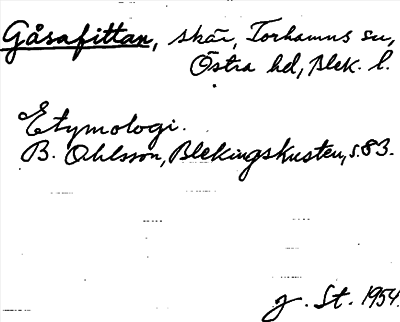 Gåsafittan, skär, Torhamns sn,
Östra hd, Blek. l.
Etymologi.
B. Ohlsson, Blekingskusten, s. 83.
g. St. 1954.